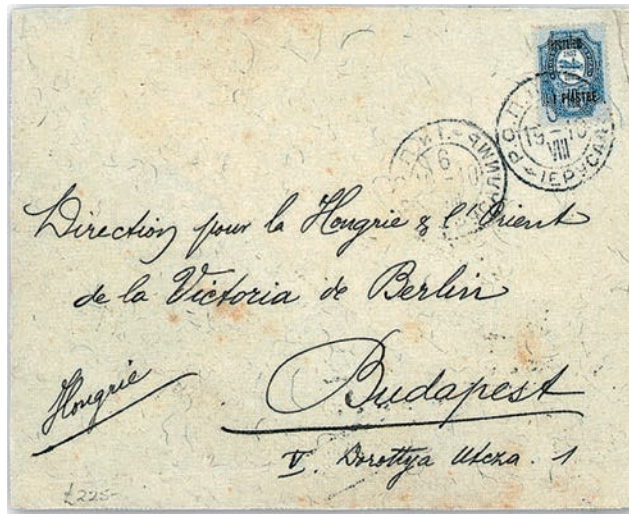 1 PIASTRE
Р.О.П.
15 - 10
VIII
ІЕРУСАЛ
6
10
Direction pour la Hongrie & l'Orient
de la Victoria de Berlin
Hongrie
Budapest
V. Dorottya Utcza. 1
£225-